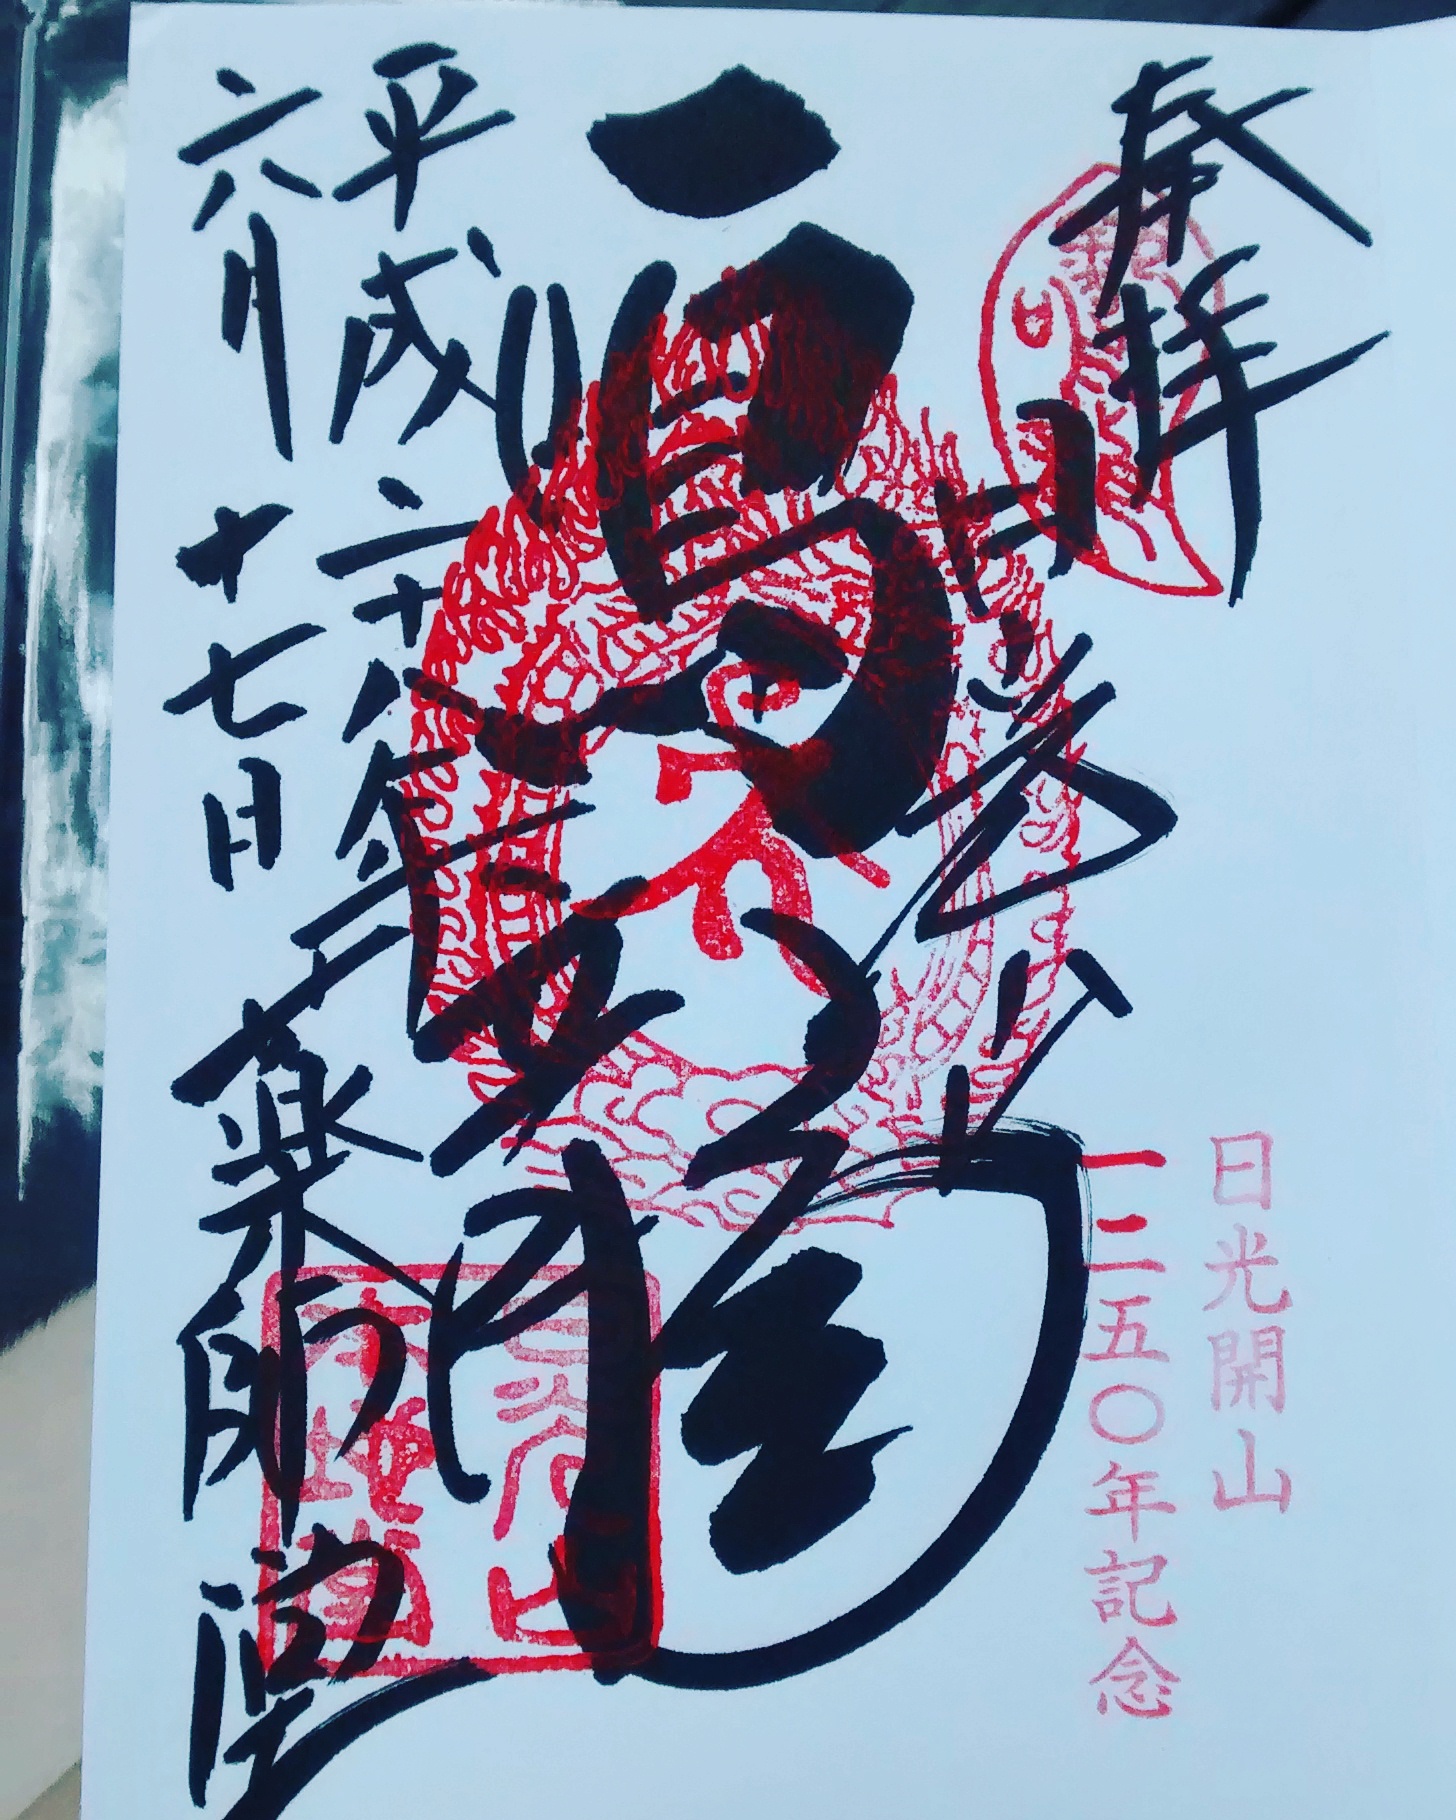 奉拝
日光開山
一二五〇年記念
日光山
鳴龍
平成二十八年
六月十七日
薬師堂
日光山
本地堂